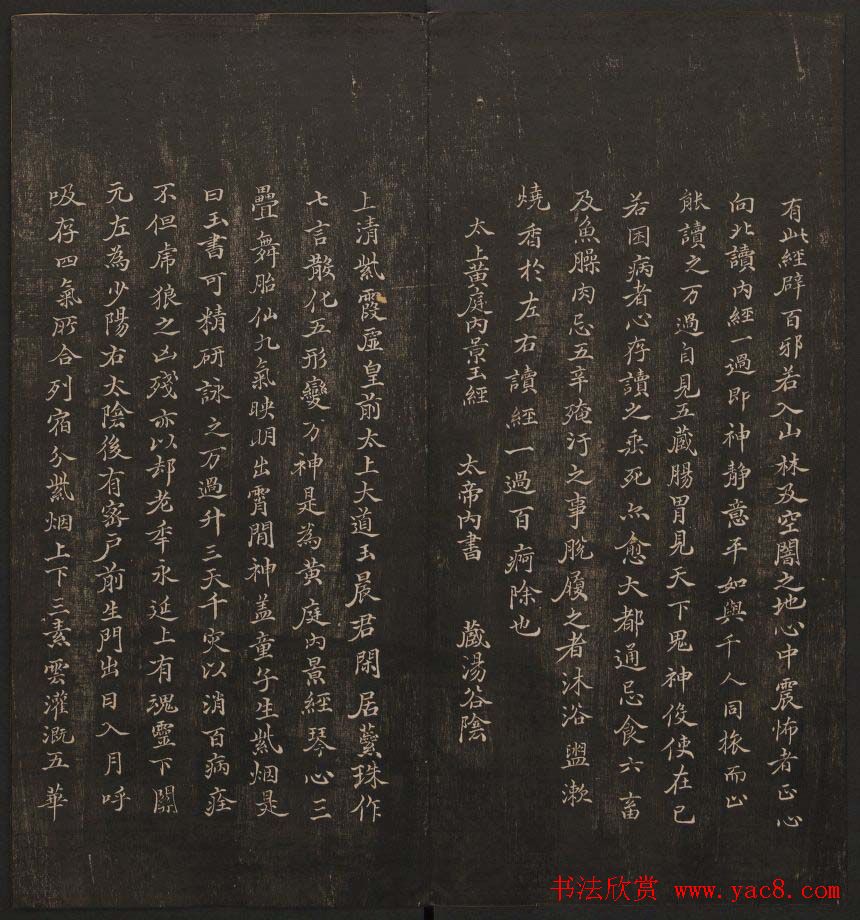 有此經辟百邪若入山林及空闇之地心中震怖者正心
向北讀內經一過即神靜意平如與千人同旅而止
能讀之万過自見五藏腸胃見天下鬼神役使在己
若困病者心存讀之垂死亦愈大都通忌食六畜
及魚臊肉忌五辛殗汙之事脫履之者沐浴盥漱
燒香於左右讀經一過百痾除也
太上黃庭內景玉經 太帝內書 藏湯谷陰
上清紫霞虛皇前太上大道玉晨君閑居蘂珠作
七言散化五形變万神是為黃庭內景經琴心三
疊舞胎仙九氣映明出霄間神盖童子生紫烟是
曰玉書可精研詠之万過升三天千灾以消百病痊
不但虎狼之凶殘亦以却老年永延上有魂靈下關
元左為少陽右太陰後有密戶前生門出日入月呼
吸存四氣所合列宿分紫烟上下三素雲灌溉五華
书法欣赏 www.yac8.com